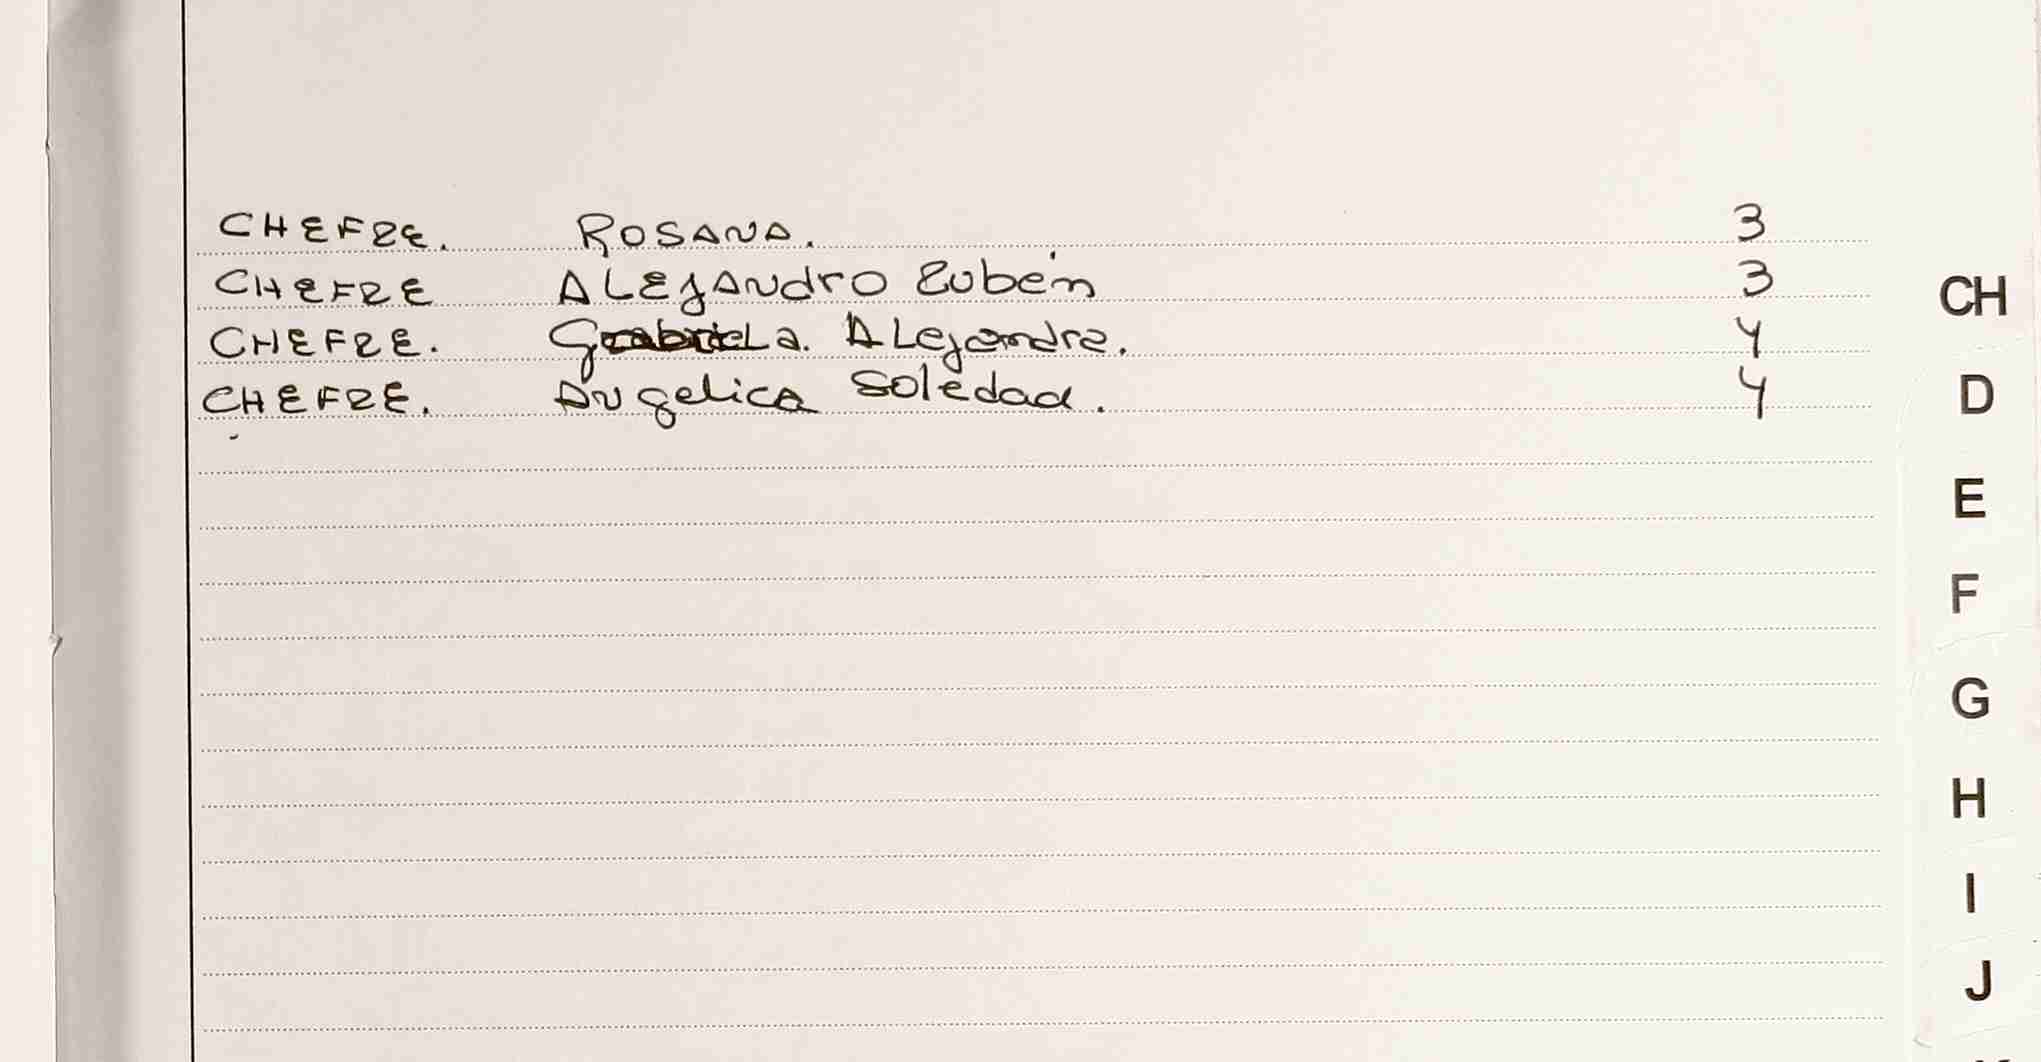 CHEFRE. ROSANA. 3
CHEFRE ALEJANDRO Rubén 3
CHEFRE. Gabriela. ALejandra. 4
CHEFRE. Angelica Soledad. 4
CH
D
E
F
G
H
I
J